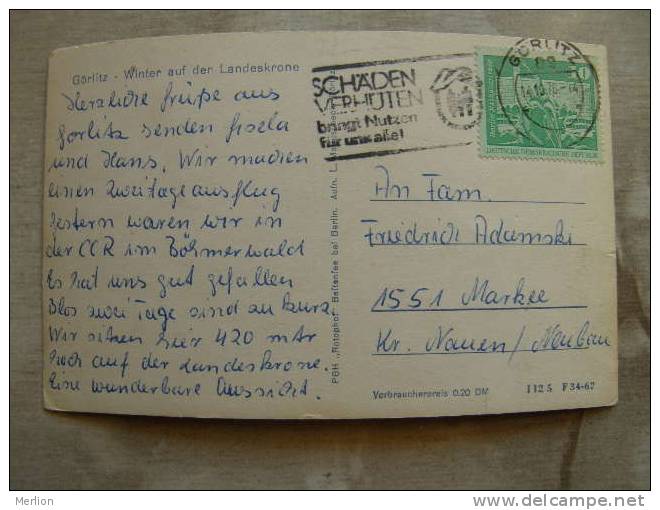 Görlitz - Winter auf der Landeskrone
Herzliche Grüße aus
Görlitz senden Gisela
und Hans. Wir machen
einen Zweitageausflug
Gestern waren wir in
der CCR im Böhmerwald
Es hat uns gut gefallen
Blos zwei Tage sind zu kurz
Wir sitzen hier 420 mtr
hoch auf der Landeskrone.
Eine wunderbare Aussicht.
PGH „Rotophot" Bestensee bei Berlin. Aufn.
SCHÄDEN
VERHÜTEN
bringt Nutzen
für uns alle!
GÖRLITZ
DEUTSCHE DEMOKRATISCHE REPUBLIK
An Fam.
Friedrich Adamski
1551 Markee
Kr. Nauen/Neubau
Verbraucherpreis 0.20 DM
I 12 5 F 34-67
Merlion
www.delcampe.net